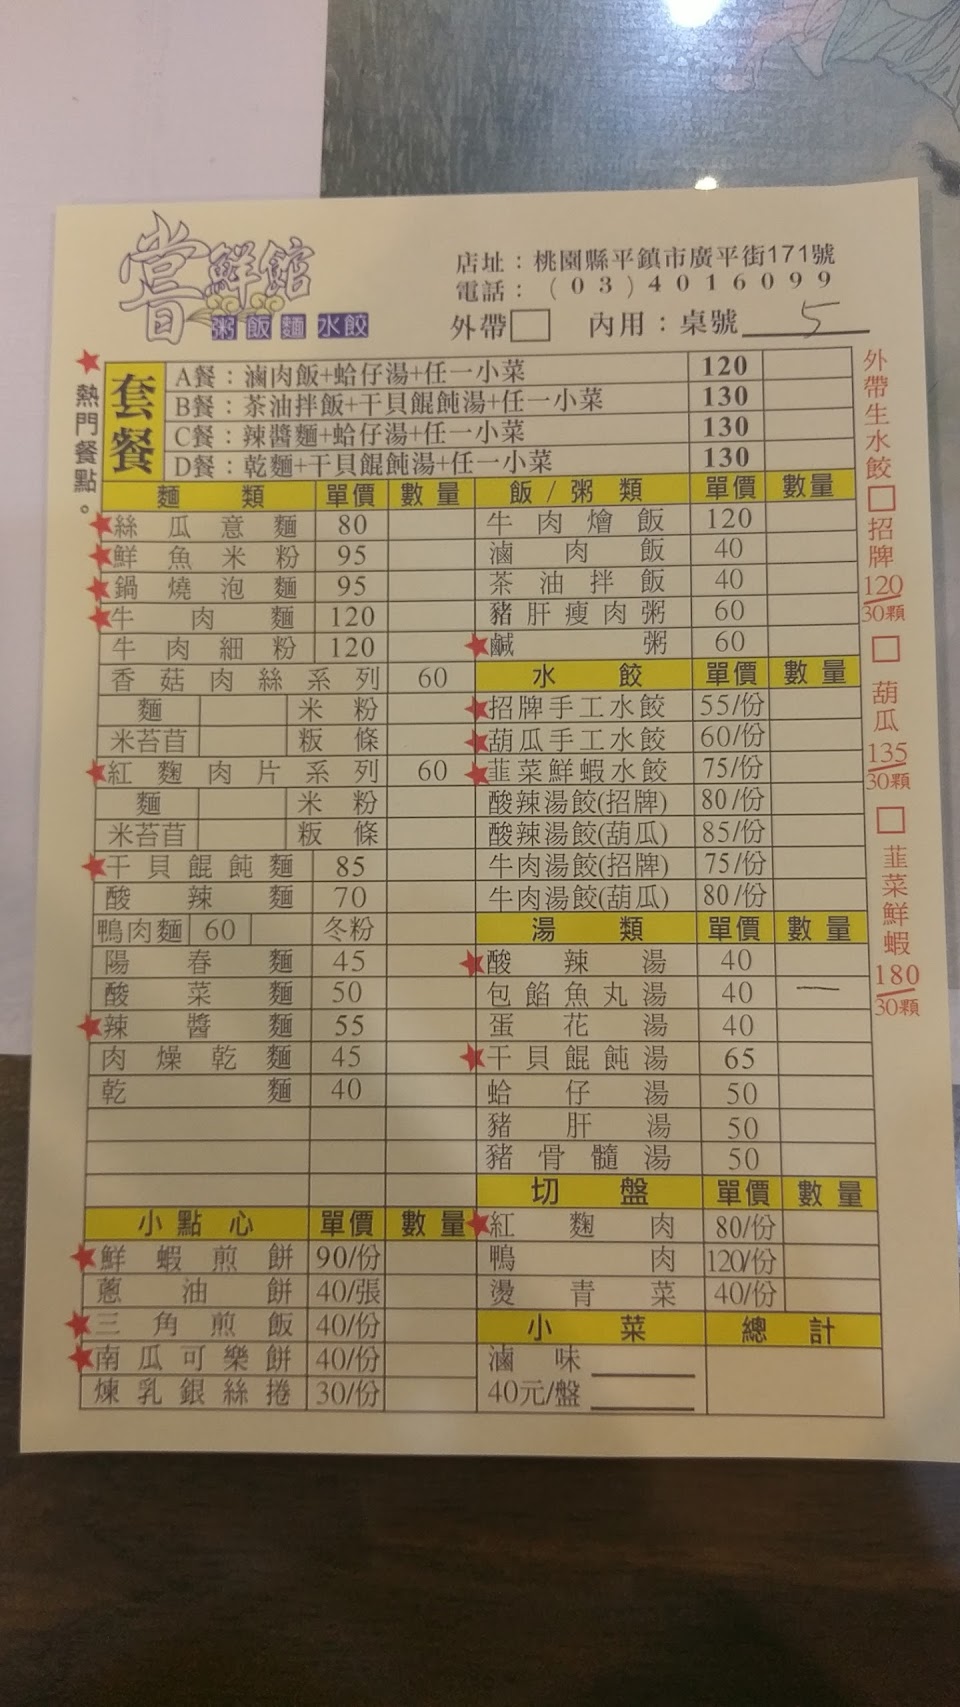 嘗鮮館
粥 飯 麵 水餃
店址：桃園縣平鎮市廣平街171號
電話：(03)4016099
外帶□ 內用：桌號 5
★熱門餐點。
套餐
A餐：滷肉飯+蛤仔湯+任一小菜 120
B餐：茶油拌飯+干貝餛飩湯+任一小菜 130
C餐：辣醬麵+蛤仔湯+任一小菜 130
D餐：乾麵+干貝餛飩湯+任一小菜 130
麵類 單價 數量
★絲瓜意麵 80
★鮮魚米粉 95
★鍋燒泡麵 95
★牛肉麵 120
牛肉細粉 120
香菇肉絲系列 60
麵 米粉
米苔苜 粄條
★紅麴肉片系列 60
麵 米粉
米苔苜 粄條
★干貝餛飩麵 85
酸辣麵 70
鴨肉麵 60 冬粉
陽春麵 45
酸菜麵 50
★辣醬麵 55
肉燥乾麵 45
乾麵 40
小點心 單價 數量
★鮮蝦煎餅 90/份
蔥油餅 40/張
★三角煎飯 40/份
★南瓜可樂餅 40/份
煉乳銀絲捲 30/份
飯/粥類 單價 數量
牛肉燴飯 120
滷肉飯 40
茶油拌飯 40
豬肝瘦肉粥 60
★鹹粥 60
水餃 單價 數量
★招牌手工水餃 55/份
★葫瓜手工水餃 60/份
★韭菜鮮蝦水餃 75/份
酸辣湯餃(招牌) 80/份
酸辣湯餃(葫瓜) 85/份
牛肉湯餃(招牌) 75/份
牛肉湯餃(葫瓜) 80/份
湯類 單價 數量
★酸辣湯 40
包餡魚丸湯 40 一
蛋花湯 40
★干貝餛飩湯 65
蛤仔湯 50
豬肝湯 50
豬骨髓湯 50
切盤 單價 數量
★紅麴肉 80/份
鴨肉 120/份
燙青菜 40/份
小菜 總計
滷味
40元/盤
外帶生水餃
□招牌 120/30顆
□葫瓜 135/30顆
□韭菜鮮蝦 180/30顆